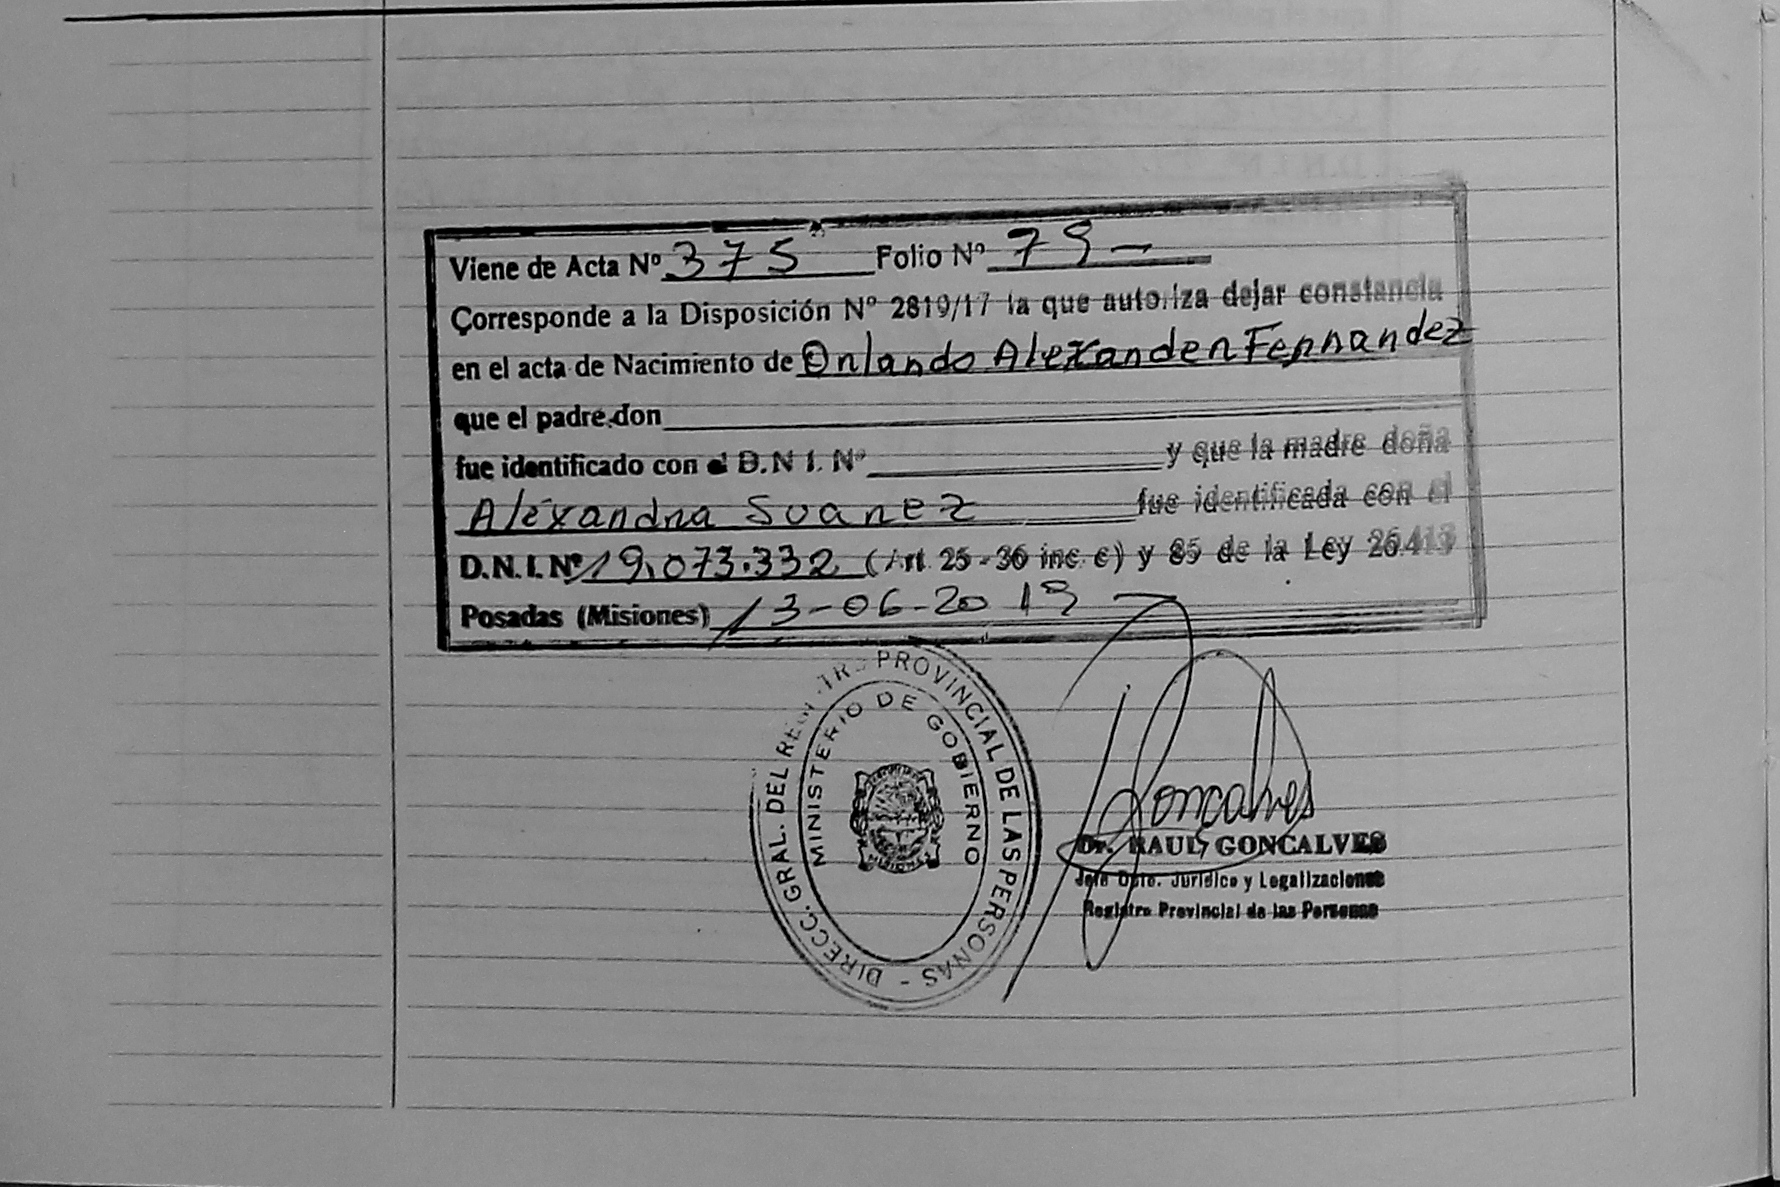 Viene de Acta Nº 375 Folio Nº 79 -
Corresponde a la Disposición Nº 2819/17 la que autoriza dejar constancia
en el acta de Nacimiento de Orlando Alexander Fernandez
que el padre don
fue identificado con el D.N.I. Nº y que la madre doña
Alexandra Suarez fue identificada con el
D.N.I. Nº 19.073.332 (Art. 25 - 36 inc. c) y 85 de la Ley 26.413
Posadas (Misiones) 13-06-2019
DIRECC. GRAL. DEL REGISTRO PROVINCIAL DE LAS PERSONAS -
MINISTERIO DE GOBIERNO
MISIONES
Goncalves
Dr. RAUL GONCALVES
Jefe Dpto. Jurídico y Legalizaciones
Registro Provincial de las Personas